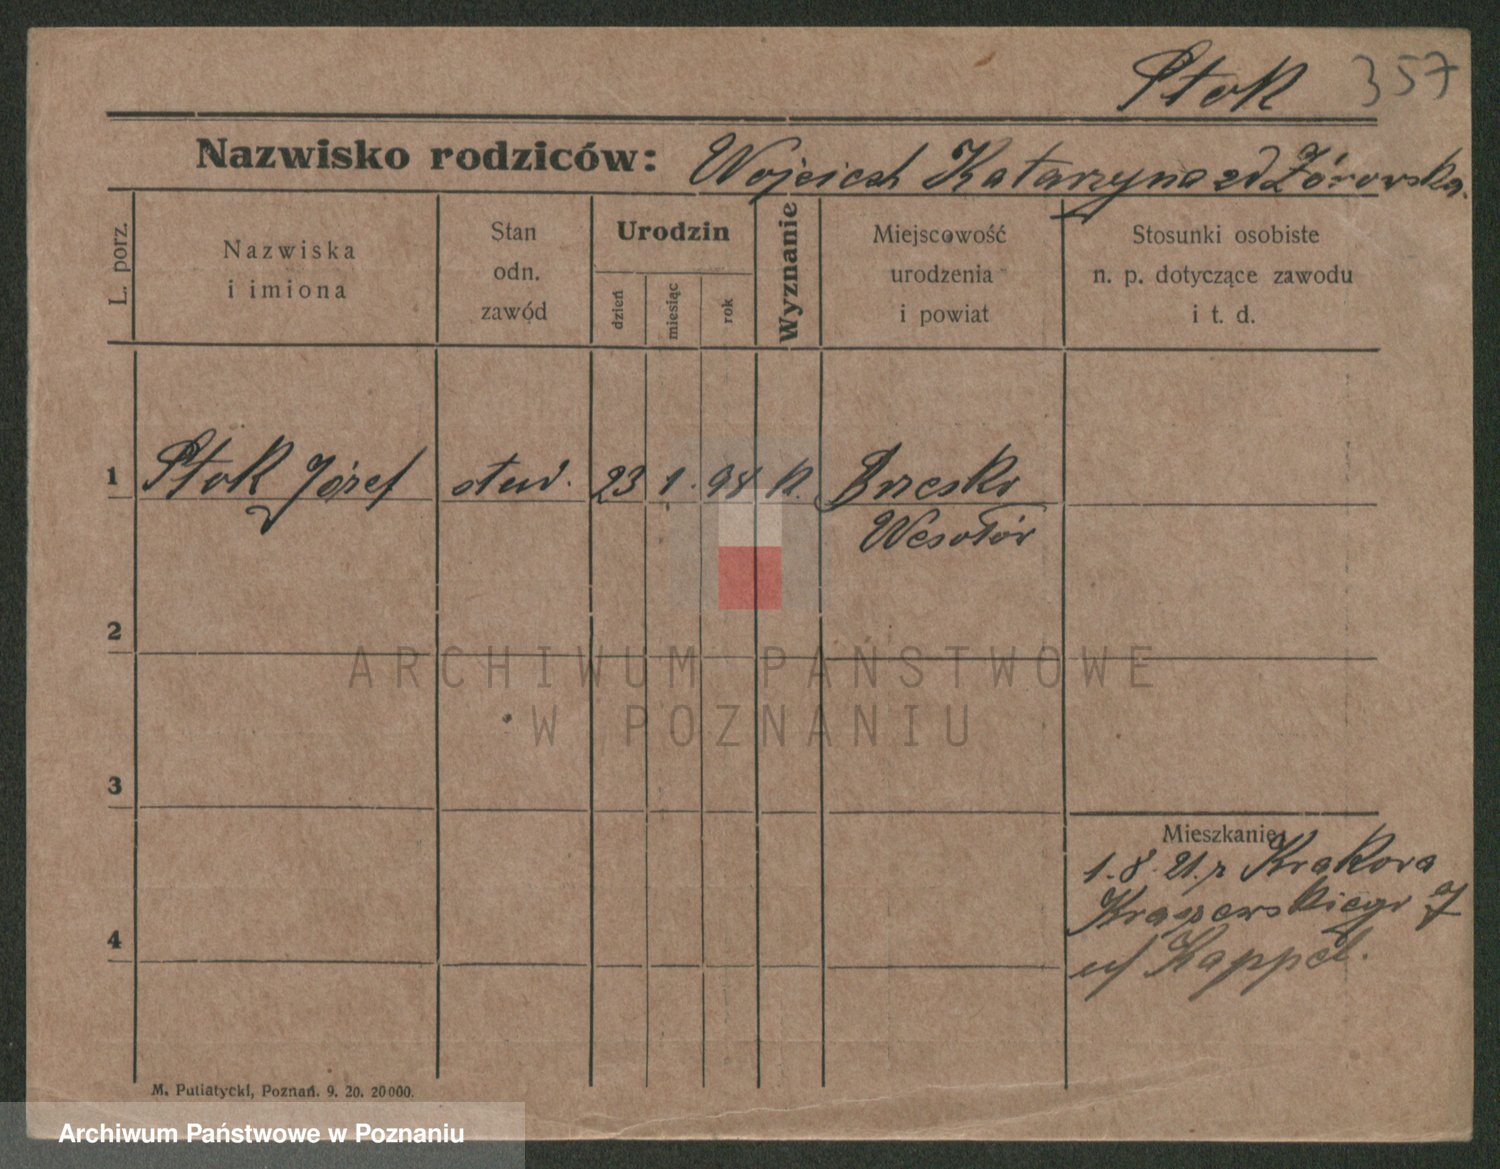 Ptok 357
Nazwisko rodziców: Wojciech Katarzyna zd Żórowska.
L. porz.
Nazwiska
i imiona
Stan
odn.
zawód
Urodzin
dzień
miesiąc
rok
Wyznanie
Miejscowość
urodzenia
i powiat
Stosunki osobiste
n. p. dotyczące zawodu
i t. d.
1 Ptok Józef stud. 23 1. 94 k. Brzesko
2
3
4
Mieszkanie
1.8.21. z Krakowa
Kraszewskiego 7
u/ Kappel.
M. Putiatycki, Poznań. 9. 20. 20000.
ARCHIWUM PAŃSTWOWE
W POZNANIU
Archiwum Państwowe w Poznaniu